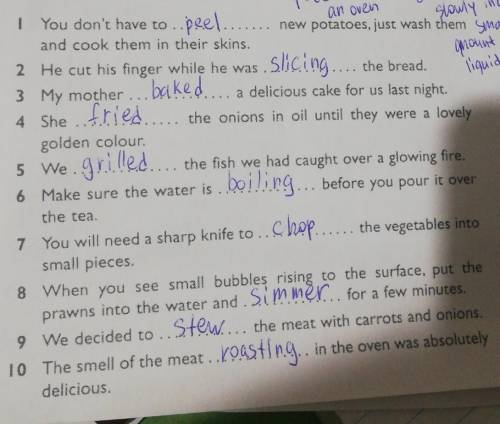 an oven slowly in
1 You don't have to ..peel........ new potatoes, just wash them
and cook them in their skins.
amount
liquid
2 He cut his finger while he was .slicing.... the bread.
3 My mother ...baked.... a delicious cake for us last night.
4 She ..fried..... the onions in oil until they were a lovely
golden colour.
5 We .grilled.... the fish we had caught over a glowing fire.
6 Make sure the water is ..boiling... before you pour it over
the tea.
7 You will need a sharp knife to ..chop...... the vegetables into
small pieces.
8 When you see small bubbles rising to the surface, put the
prawns into the water and .simmer.. for a few minutes.
9 We decided to ..stew.... the meat with carrots and onions.
10 The smell of the meat ..roasting.. in the oven was absolutely
delicious.